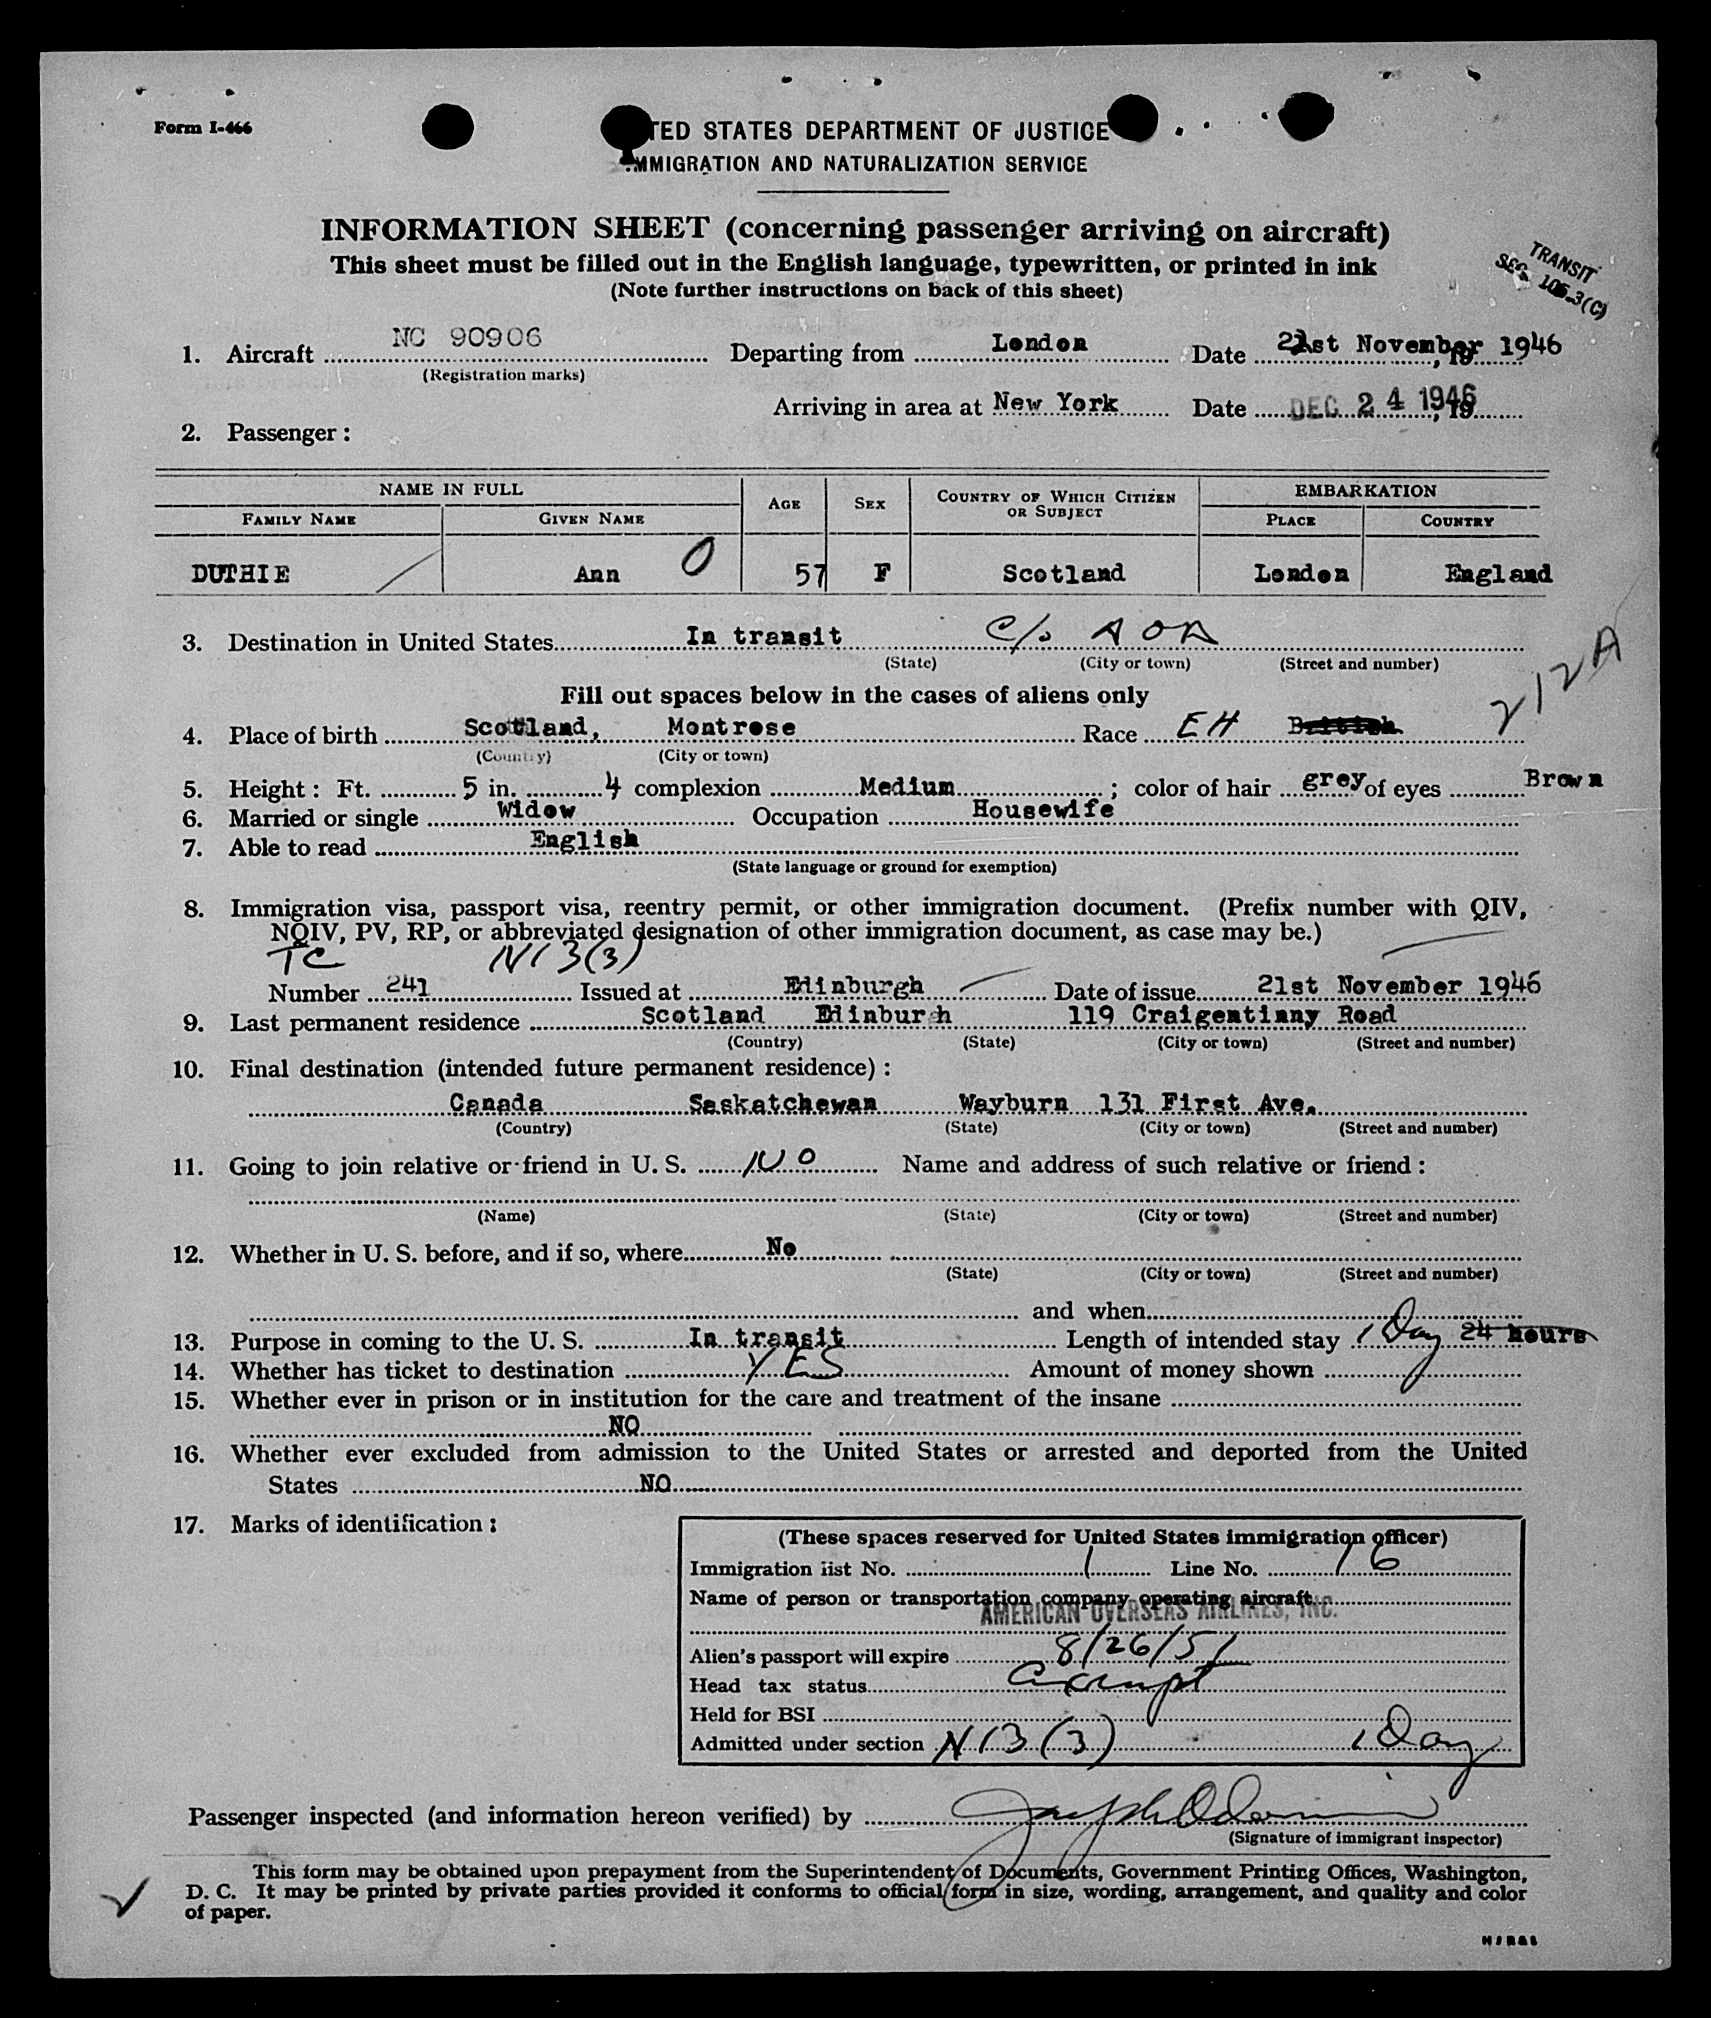 Form I-466
TED STATES DEPARTMENT OF JUSTICE
MMIGRATION AND NATURALIZATION SERVICE
INFORMATION SHEET (concerning passenger arriving on aircraft)
This sheet must be filled out in the English language, typewritten, or printed in ink
(Note further instructions on back of this sheet)
TRANSIT
SEC. 105.3(C)
1. Aircraft NC 90906 Departing from London Date 21st November, 1946
(Registration marks)
Arriving in area at New York Date DEC 24 1946
2. Passenger:
NAME IN FULL AGE SEX COUNTRY OF WHICH CITIZEN OR SUBJECT EMBARKATION
FAMILY NAME GIVEN NAME PLACE COUNTRY
DUTHIE Ann O 57 F Scotland London England
3. Destination in United States In transit C/o AOA
(State) (City or town) (Street and number)
212A
Fill out spaces below in the cases of aliens only
4. Place of birth Scotland, Montrose Race EH British
(Country) (City or town)
5. Height: Ft. 5 in. 4 complexion Medium; color of hair grey of eyes Brown
6. Married or single Widow Occupation Housewife
7. Able to read English
(State language or ground for exemption)
8. Immigration visa, passport visa, reentry permit, or other immigration document. (Prefix number with QIV,
NQIV, PV, RP, or abbreviated designation of other immigration document, as case may be.)
TC N13(3)
Number 241 Issued at Edinburgh Date of issue 21st November 1946
9. Last permanent residence Scotland Edinburgh 119 Craigentinny Road
(Country) (State) (City or town) (Street and number)
10. Final destination (intended future permanent residence):
Canada Saskatchewan Wayburn 131 First Ave.
(Country) (State) (City or town) (Street and number)
11. Going to join relative or friend in U. S. NO Name and address of such relative or friend:
(Name) (State) (City or town) (Street and number)
12. Whether in U. S. before, and if so, where No
(State) (City or town) (Street and number)
and when
13. Purpose in coming to the U. S. In transit Length of intended stay 1 Day 24 hours
14. Whether has ticket to destination YES Amount of money shown
15. Whether ever in prison or in institution for the care and treatment of the insane
NO
16. Whether ever excluded from admission to the United States or arrested and deported from the United
States NO
17. Marks of identification:
(These spaces reserved for United States immigration officer)
Immigration list No. 1 Line No. 16
Name of person or transportation company operating aircraft
AMERICAN OVERSEAS AIRLINES, INC.
Alien's passport will expire 8/26/51
Head tax status Exempt
Held for BSI
Admitted under section N13(3) 1 Day
Passenger inspected (and information hereon verified) by
(Signature of immigrant inspector)
This form may be obtained upon prepayment from the Superintendent of Documents, Government Printing Offices, Washington,
D. C. It may be printed by private parties provided it conforms to official form in size, wording, arrangement, and quality and color
of paper.